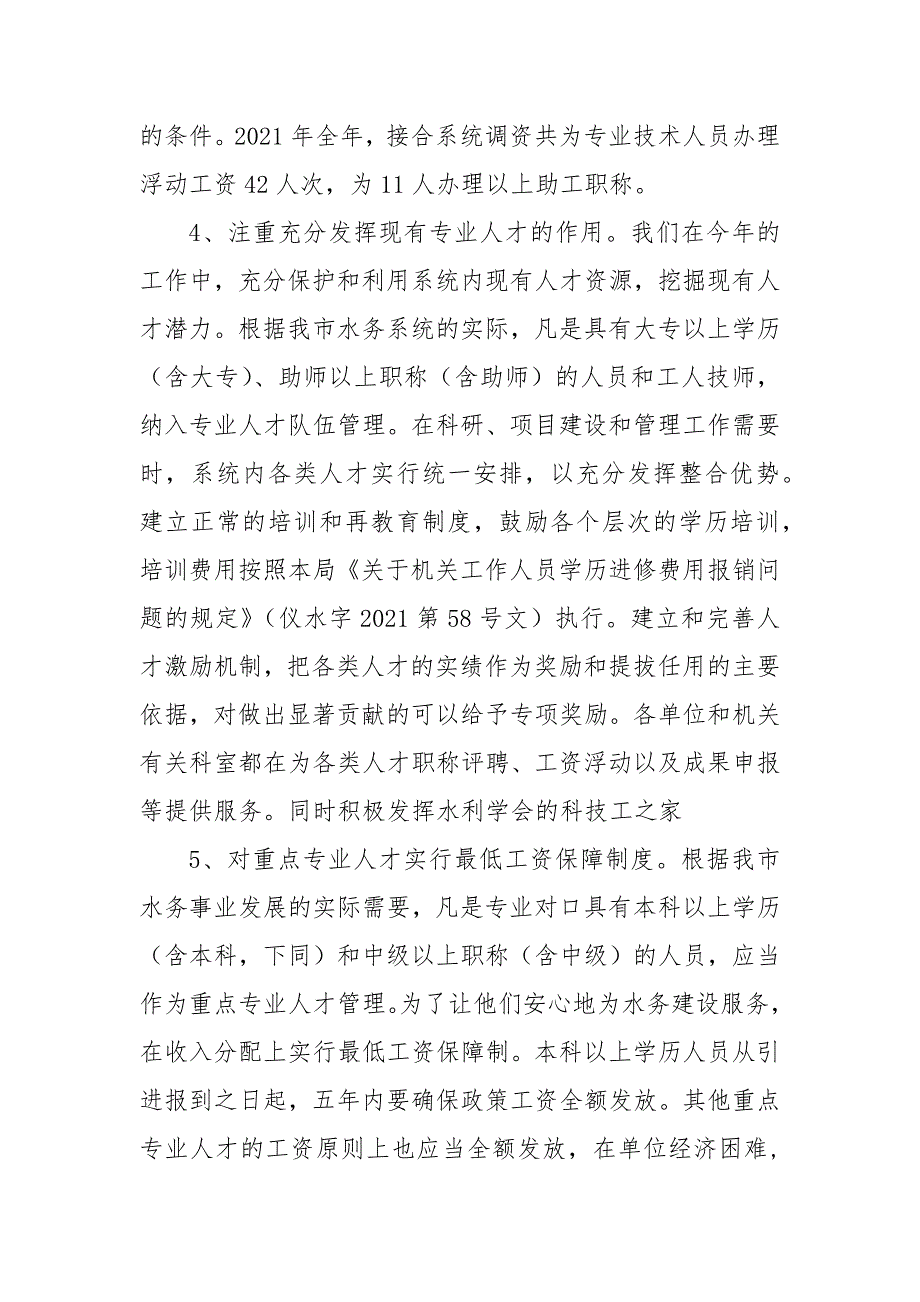 的条件。2021 年全年，接合系统调资共为专业技术人员办理
浮动工资 42 人次，为 11 人办理以上助工职称。
4、注重充分发挥现有专业人才的作用。我们在今年的
工作中，充分保护和利用系统内现有人才资源，挖掘现有人
才潜力。根据我市水务系统的实际，凡是具有大专以上学历
（含大专）、助师以上职称（含助师）的人员和工人技师，
纳入专业人才队伍管理。在科研、项目建设和管理工作需要
时，系统内各类人才实行统一安排，以充分发挥整合优势。
建立正常的培训和再教育制度，鼓励各个层次的学历培训，
培训费用按照本局《关于机关工作人员学历进修费用报销问
题的规定》（仪水字 2021 第 58 号文）执行。建立和完善人
才激励机制，把各类人才的实绩作为奖励和提拔任用的主要
依据，对做出显著贡献的可以给予专项奖励。各单位和机关
有关科室都在为各类人才职称评聘、工资浮动以及成果申报
等提供服务。同时积极发挥水利学会的科技工之家
5、对重点专业人才实行最低工资保障制度。根据我市
水务事业发展的实际需要，凡是专业对口具有本科以上学历
（含本科，下同）和中级以上职称（含中级）的人员，应当
作为重点专业人才管理。为了让他们安心地为水务建设服务，
在收入分配上实行最低工资保障制。本科以上学历人员从引
进报到之日起，五年内要确保政策工资全额发放。其他重点
专业人才的工资原则上也应当全额发放，在单位经济困难，